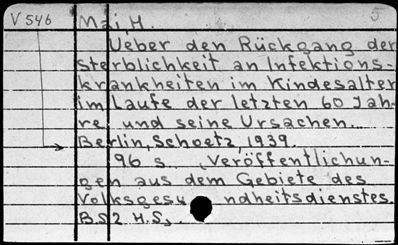 V 546 Mai, H. 5
Ueber den Rückgang der
Sterblichkeit an Infektions-
krankheiten im Kindesalter
im Laufe der letzten 60 Jah-
re und seine Ursachen.
Berlin, Schoetz, 1939.
96 s. (Veröffentlichun-
gen aus dem Gebiete des
Volksgesundheitsdienstes.